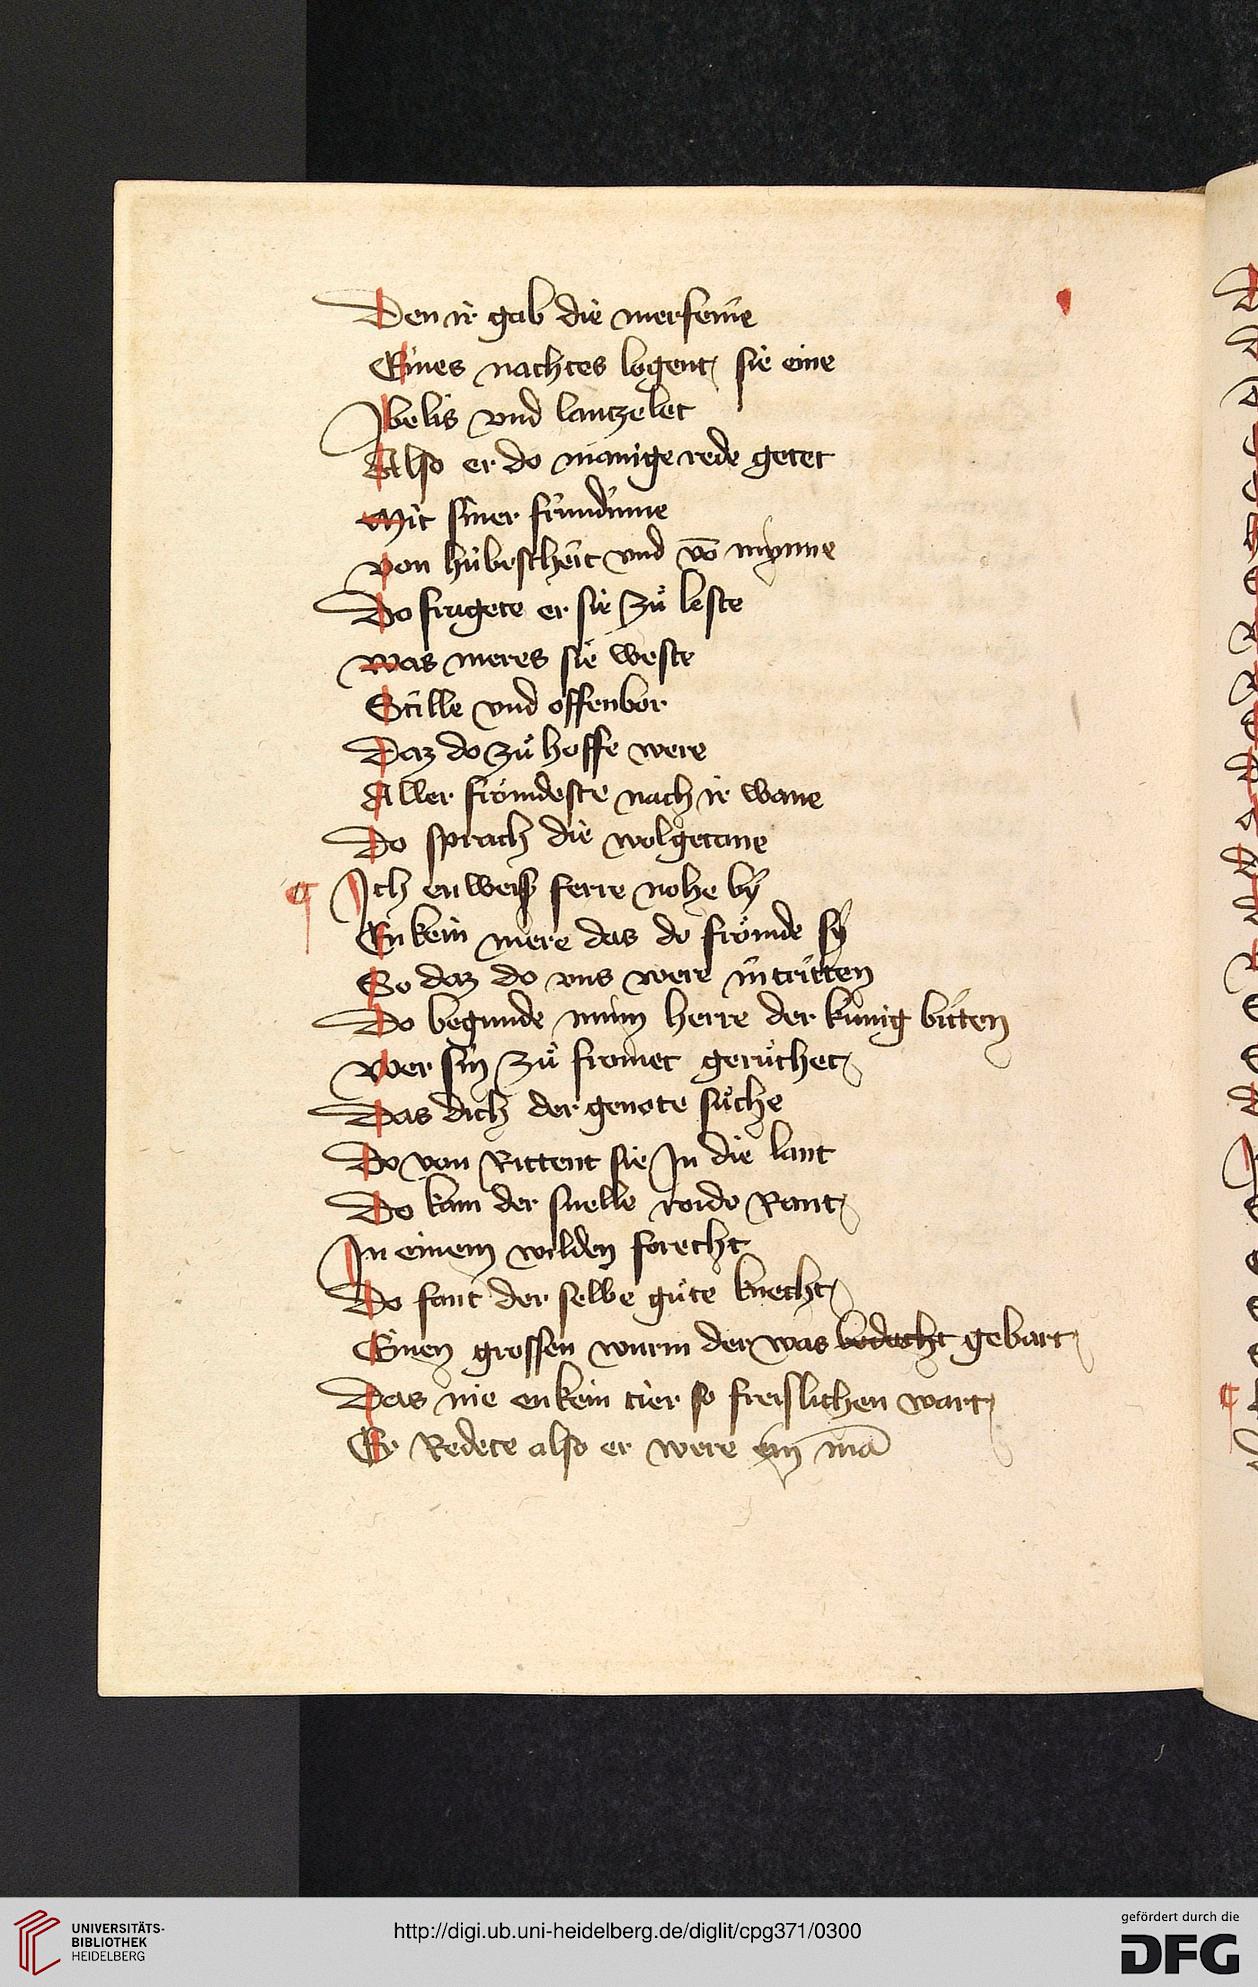 Den ir gab die merfeine
Eines nachtes logent sie eine
Jbelis vnd lantzelet
Also er do manige rede getet
Mit siner fründinne
von hübescheit vnd vō mynne
Do fragete er sie zů leste
was meres sie weste
Stille vnd offenbor
Daz do zů hoffe were
Aller frömdeste nach ir wane
Do sprach die wolgetane
¶ Ich enweiß ferre nohe bÿ
Enkein mere das do frömde sÿ
So daz do vns were intritten
Do begunde minn herre der künig bitten
wer sin zů fromet gerůchet
Das dich der genote sůche
Do von Rittent sie Jn die lant
Do kam der snelle roido Rant
Jn einem wilden forecht
Do fant der selbe gůte knecht
Einen grossen wurm der was bedecht gebart
Das nie enkein tier so freislichen wart
Er Redete also er were ein mā
UNIVERSITÄTS-
BIBLIOTHEK
HEIDELBERG
http://digi.ub.uni-heidelberg.de/diglit/cpg371/0300
gefördert durch die
DFG